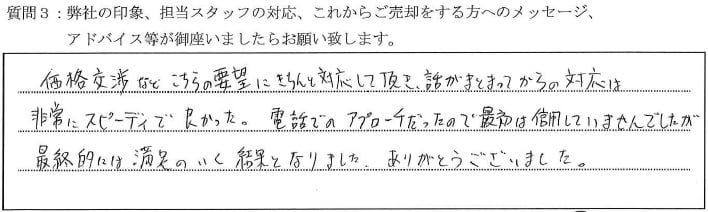 質問3：弊社の印象、担当スタッフの対応、これからご売却をする方へのメッセージ、
アドバイス等が御座いましたらお願い致します。
価格交渉など こちらの要望にきちんと対応して頂き、話がまとまってからの対応は
非常にスピーディで良かった。電話でのアプローチだったので最初は信用していませんでしたが
最終的には満足のいく結果となりました。ありがとうございました。